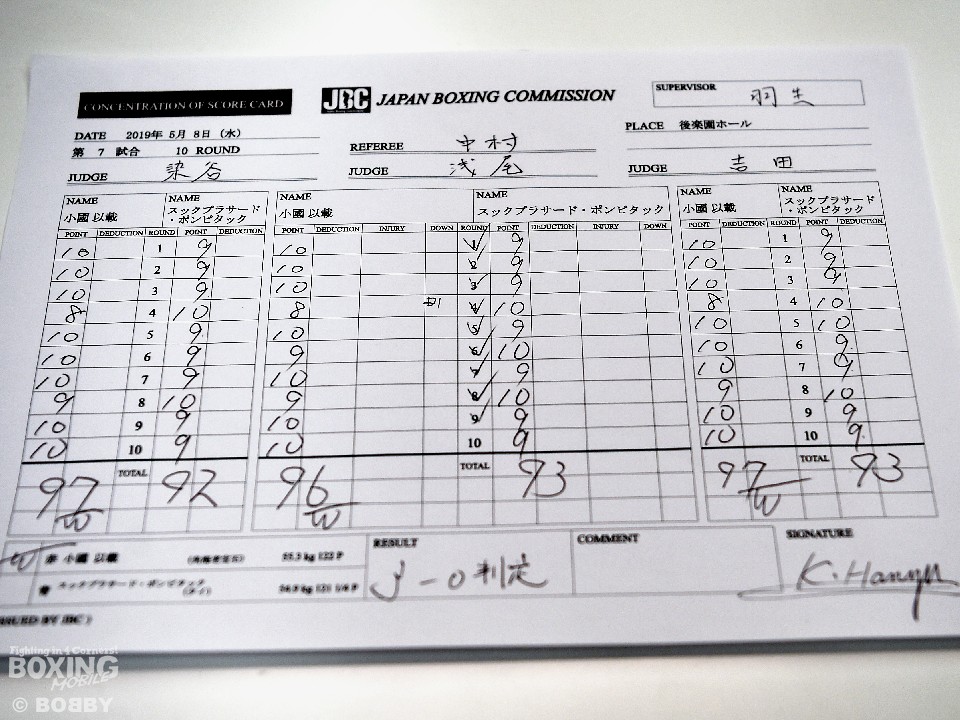 CONCENTRATION OF SCORE CARD
JBC JAPAN BOXING COMMISSION
SUPERVISOR 羽生
DATE 2019年 5月 8日 (水)
PLACE 後楽園ホール
第 7 試合 10 ROUND
REFEREE 中村
JUDGE 染谷
JUDGE 浅尾
JUDGE 吉田
NAME NAME NAME NAME NAME NAME
小國 以載 スックプラサード・ポンピタック 小國 以載 スックプラサード・ポンピタック 小國 以載 スックプラサード・ポンピタック
POINT DEDUCTION ROUND POINT DEDUCTION POINT DEDUCTION INJURY DOWN ROUND POINT DEDUCTION INJURY DOWN POINT DEDUCTION ROUND POINT DEDUCTION
10 1 9 10 1 9 10 1 9
10 2 9 10 2 9 10 2 9
10 3 9 10 3 9 10 3 9
8 4 10 8 4 10 8 4 10
10 5 9 10 5 9 10 5 10
10 6 9 9 6 10 10 6 9
10 7 9 10 7 9 10 7 9
9 8 10 9 8 10 9 8 10
10 9 9 10 9 9 10 9 9
10 10 9 10 10 9 10 10 9
97 W TOTAL 92 96 W TOTAL 93 97 W TOTAL 93
W 赤 小國 以載 55.3 kg 122 P
青 スックプラサード・ポンピタック (タイ)
RESULT
3-0 判定
COMMENT
SIGNATURE
K.Hanyu
ISSUED BY JBC )
Fighting in 4 Corners!
BOXING
MOBILE
© BOBBY